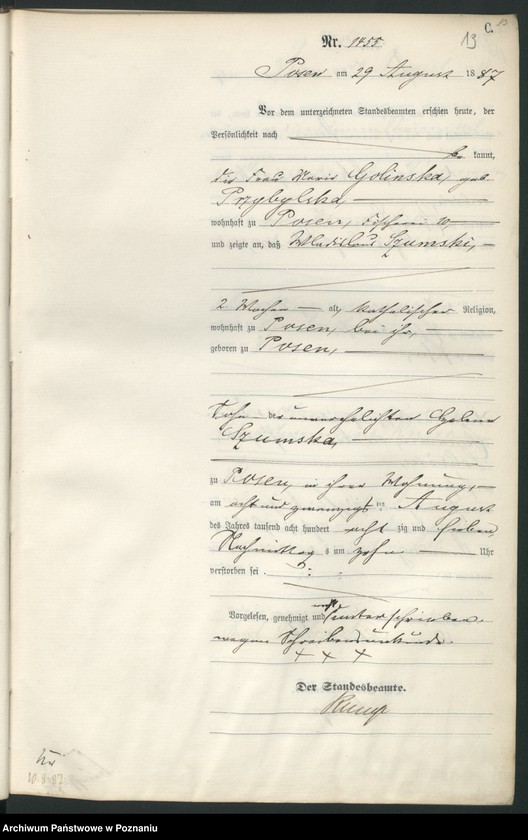 C. 13
13
Nr. 1455.
Posen am 29 August 1887
Vor dem unterzeichneten Standesbeamten erschien heute, der
Persönlichkeit nach
be kannt,
die Frau Marie Golinska, geb.
Przybylska
wohnhaft zu Posen, Fischerei 10,
und zeigte an, daß Wladislaus Szumski,
2 Wochen alt, katholischer Religion,
wohnhaft zu Posen, bei ihr,
geboren zu Posen,
Sohn der unverehelichten Helene
Szumska,
zu Posen, in ihrer Wohnung,
am acht und zwanzigsten August
des Jahres tausend acht hundert acht zig und sieben,
Nachmittags um zehn Uhr
verstorben sei.
Vorgelesen, genehmigt und nicht unterschrieben
wegen Schreibensunkunde.
+ + +
Der Standesbeamte.
Archiwum Państwowe w Poznaniu